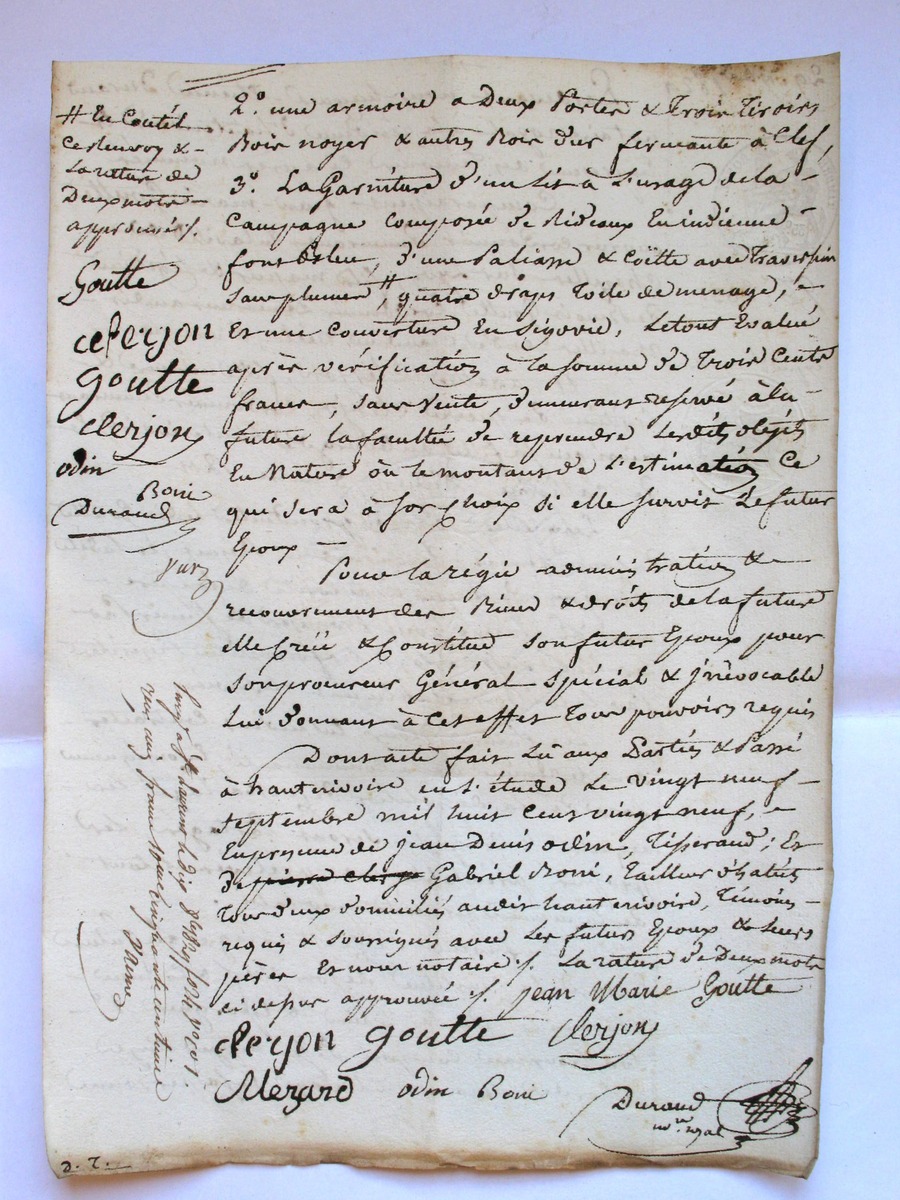 2.° une armoire a Deux Portes & Trois Tiroirs
Bois noyer & autres Bois dur fermante à Clef,
3.° La Garniture d'un lit à l'usage de la
Campagne composée de Rideaux En indienne
fond Bleu, d'une Paliasse & Coëtte avec Traversin
sans plumes #, quatre draps Toile de menage,
Et une Couverture En Sigovie, Le tout Evalué
après vérification à la somme de Trois Cents
francs, sans Vente, demeurant reservé à la
future la faculté de reprendre Lesdits objets
En Nature ou le montant de l'estimation Ce
qui sera à son choix si elle survit Le futur
Epoux
Pour la régie administration &
recouvrement des Biens & droits de la future
elle Créé & Constitue son futur Epoux pour
son procureur Général Spécial & jrrévocable
Lui donnant à Cet effet Tous pouvoirs requis
Dont acte fait Lu aux Parties & Passé
à hauterivoire en l'étude Le vingt neuf
septembre mil huit Cent vingt neuf,
En presence de jean Denis odin, Tisserand; Et
De pierre Gabriel Boni, Tailleur d'habits
Tous deux domiciliés audit hauterivoire, Témoins
requis & soussignés avec Les futurs Epoux & Leurs
pères Et nous notaire ./. La rature de Deux mots
ci dessus approuvée ./. jean Marie Goutte
clerjon goutte Clerjon
Mezard odin Boni
Durand
no.re royal
# En Coutil
Ce renvoy &
La rature de
Deux mots
approuvés ./.
Goutte
clerjon
goutte
clerjon
odin
Boni
Durand
D. T.